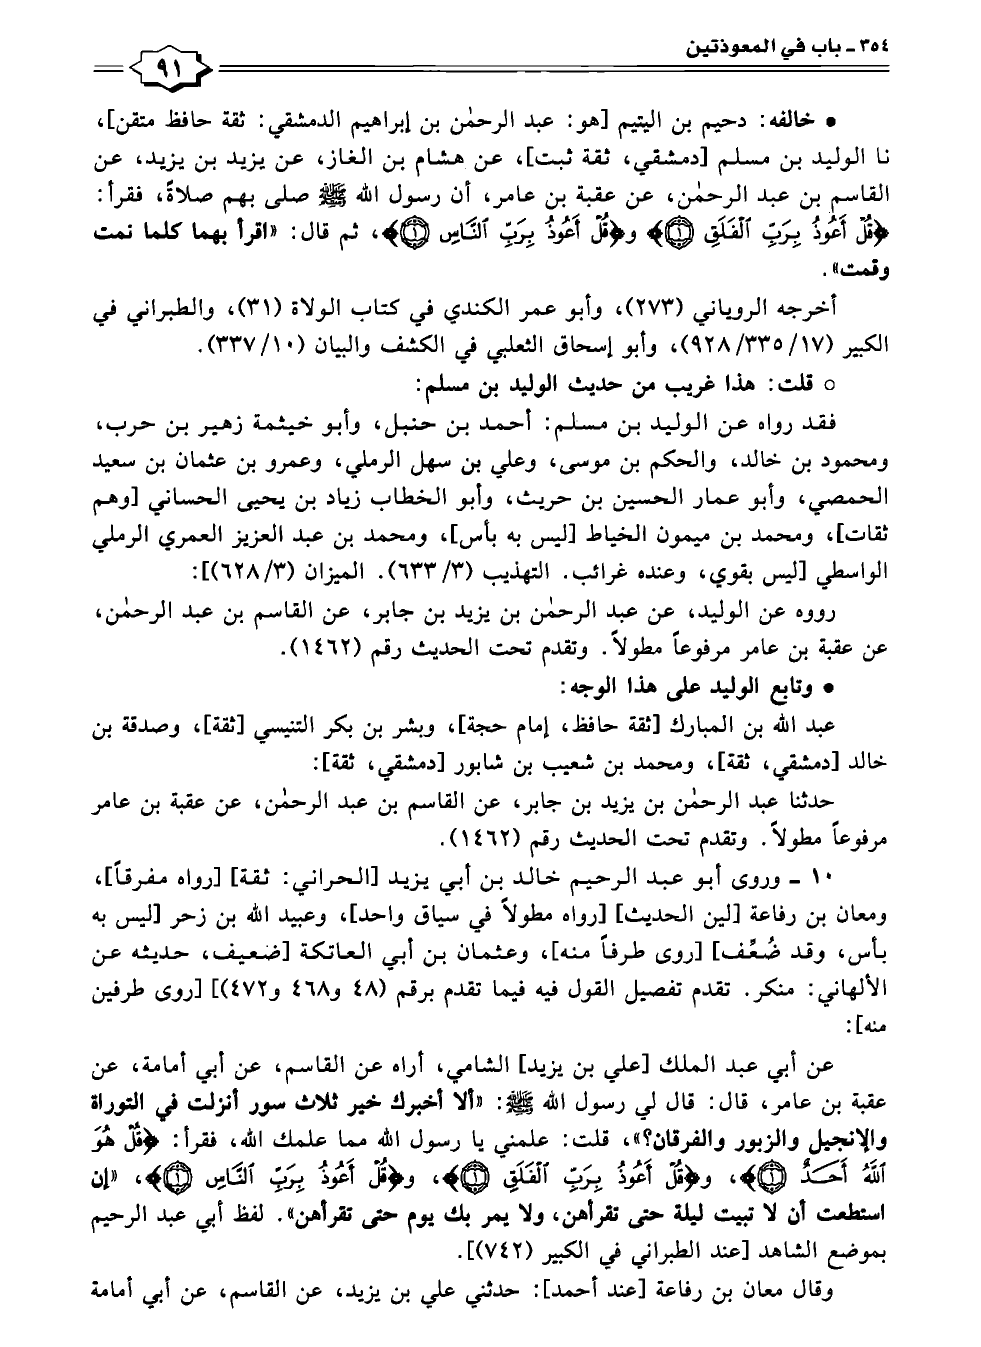 ٣٥٤ - باب في المعوذتين
٩١
• خالفه: دحيم بن اليتيم [هو: عبد الرحمٰن بن إبراهيم الدمشقي: ثقة حافظ متقن]،
نا الوليد بن مسلم [دمشقي، ثقة ثبت]، عن هشام بن الغاز، عن يزيد بن يزيد، عن
القاسم بن عبد الرحمٰن، عن عقبة بن عامر، أن رسول الله ﷺ صلى بهم صلاةً، فقرأ:
﴿قُلْ أَعُوذُ بِرَبِّ ٱلْفَلَقِ ۝١﴾ و﴿قُلْ أَعُوذُ بِرَبِّ ٱلنَّاسِ ۝١﴾، ثم قال: «اقرأ بهما كلما نمت
وقمت».
أخرجه الروياني (٢٧٣)، وأبو عمر الكندي في كتاب الولاة (٣١)، والطبراني في
الكبير (١٧/ ٣٣٥/ ٩٢٨)، وأبو إسحاق الثعلبي في الكشف والبيان (١٠/ ٣٣٧).
○ قلت: هذا غريب من حديث الوليد بن مسلم:
فقد رواه عن الوليد بن مسلم: أحمد بن حنبل، وأبو خيثمة زهير بن حرب،
ومحمود بن خالد، والحكم بن موسى، وعلي بن سهل الرملي، وعمرو بن عثمان بن سعيد
الحمصي، وأبو عمار الحسين بن حريث، وأبو الخطاب زياد بن يحيى الحساني [وهم
ثقات]، ومحمد بن ميمون الخياط [ليس به بأس]، ومحمد بن عبد العزيز العمري الرملي
الواسطي [ليس بقوي، وعنده غرائب. التهذيب (٣/ ٦٣٣). الميزان (٣/ ٦٢٨)]:
رووه عن الوليد، عن عبد الرحمٰن بن يزيد بن جابر، عن القاسم بن عبد الرحمٰن،
عن عقبة بن عامر مرفوعاً مطولاً. وتقدم تحت الحديث رقم (١٤٦٢).
• وتابع الوليد على هذا الوجه:
عبد الله بن المبارك [ثقة حافظ، إمام حجة]، وبشر بن بكر التنيسي [ثقة]، وصدقة بن
خالد [دمشقي، ثقة]، ومحمد بن شعيب بن شابور [دمشقي، ثقة]:
حدثنا عبد الرحمٰن بن يزيد بن جابر، عن القاسم بن عبد الرحمٰن، عن عقبة بن عامر
مرفوعاً مطولاً. وتقدم تحت الحديث رقم (١٤٦٢).
١٠ - وروى أبو عبد الرحيم خالد بن أبي يزيد [الحراني: ثقة] [رواه مفرقاً]،
ومعان بن رفاعة [لين الحديث] [رواه مطولاً في سياق واحد]، وعبيد الله بن زحر [ليس به
بأس، وقد ضُعِّف] [روى طرفاً منه]، وعثمان بن أبي العاتكة [ضعيف، حديثه عن
الألهاني: منكر. تقدم تفصيل القول فيه فيما تقدم برقم (٤٨ و٤٦٨ و٤٧٢)] [روى طرفين
منه]:
عن أبي عبد الملك [علي بن يزيد] الشامي، أراه عن القاسم، عن أبي أمامة، عن
عقبة بن عامر، قال: قال لي رسول الله ﷺ: «ألا أخبرك خير ثلاث سور أنزلت في التوراة
والإنجيل والزبور والفرقان؟»، قلت: علمني يا رسول الله مما علمك الله، فقرأ: ﴿قُلْ هُوَ
ٱللَّهُ أَحَدٌ ۝١﴾، و﴿قُلْ أَعُوذُ بِرَبِّ ٱلْفَلَقِ ۝١﴾، و﴿قُلْ أَعُوذُ بِرَبِّ ٱلنَّاسِ ۝١﴾، «إن
استطعت أن لا تبيت ليلة حتى تقرأهن، ولا يمر بك يوم حتى تقرأهن». لفظ أبي عبد الرحيم
بموضع الشاهد [عند الطبراني في الكبير (٧٤٢)].
وقال معان بن رفاعة [عند أحمد]: حدثني علي بن يزيد، عن القاسم، عن أبي أمامة